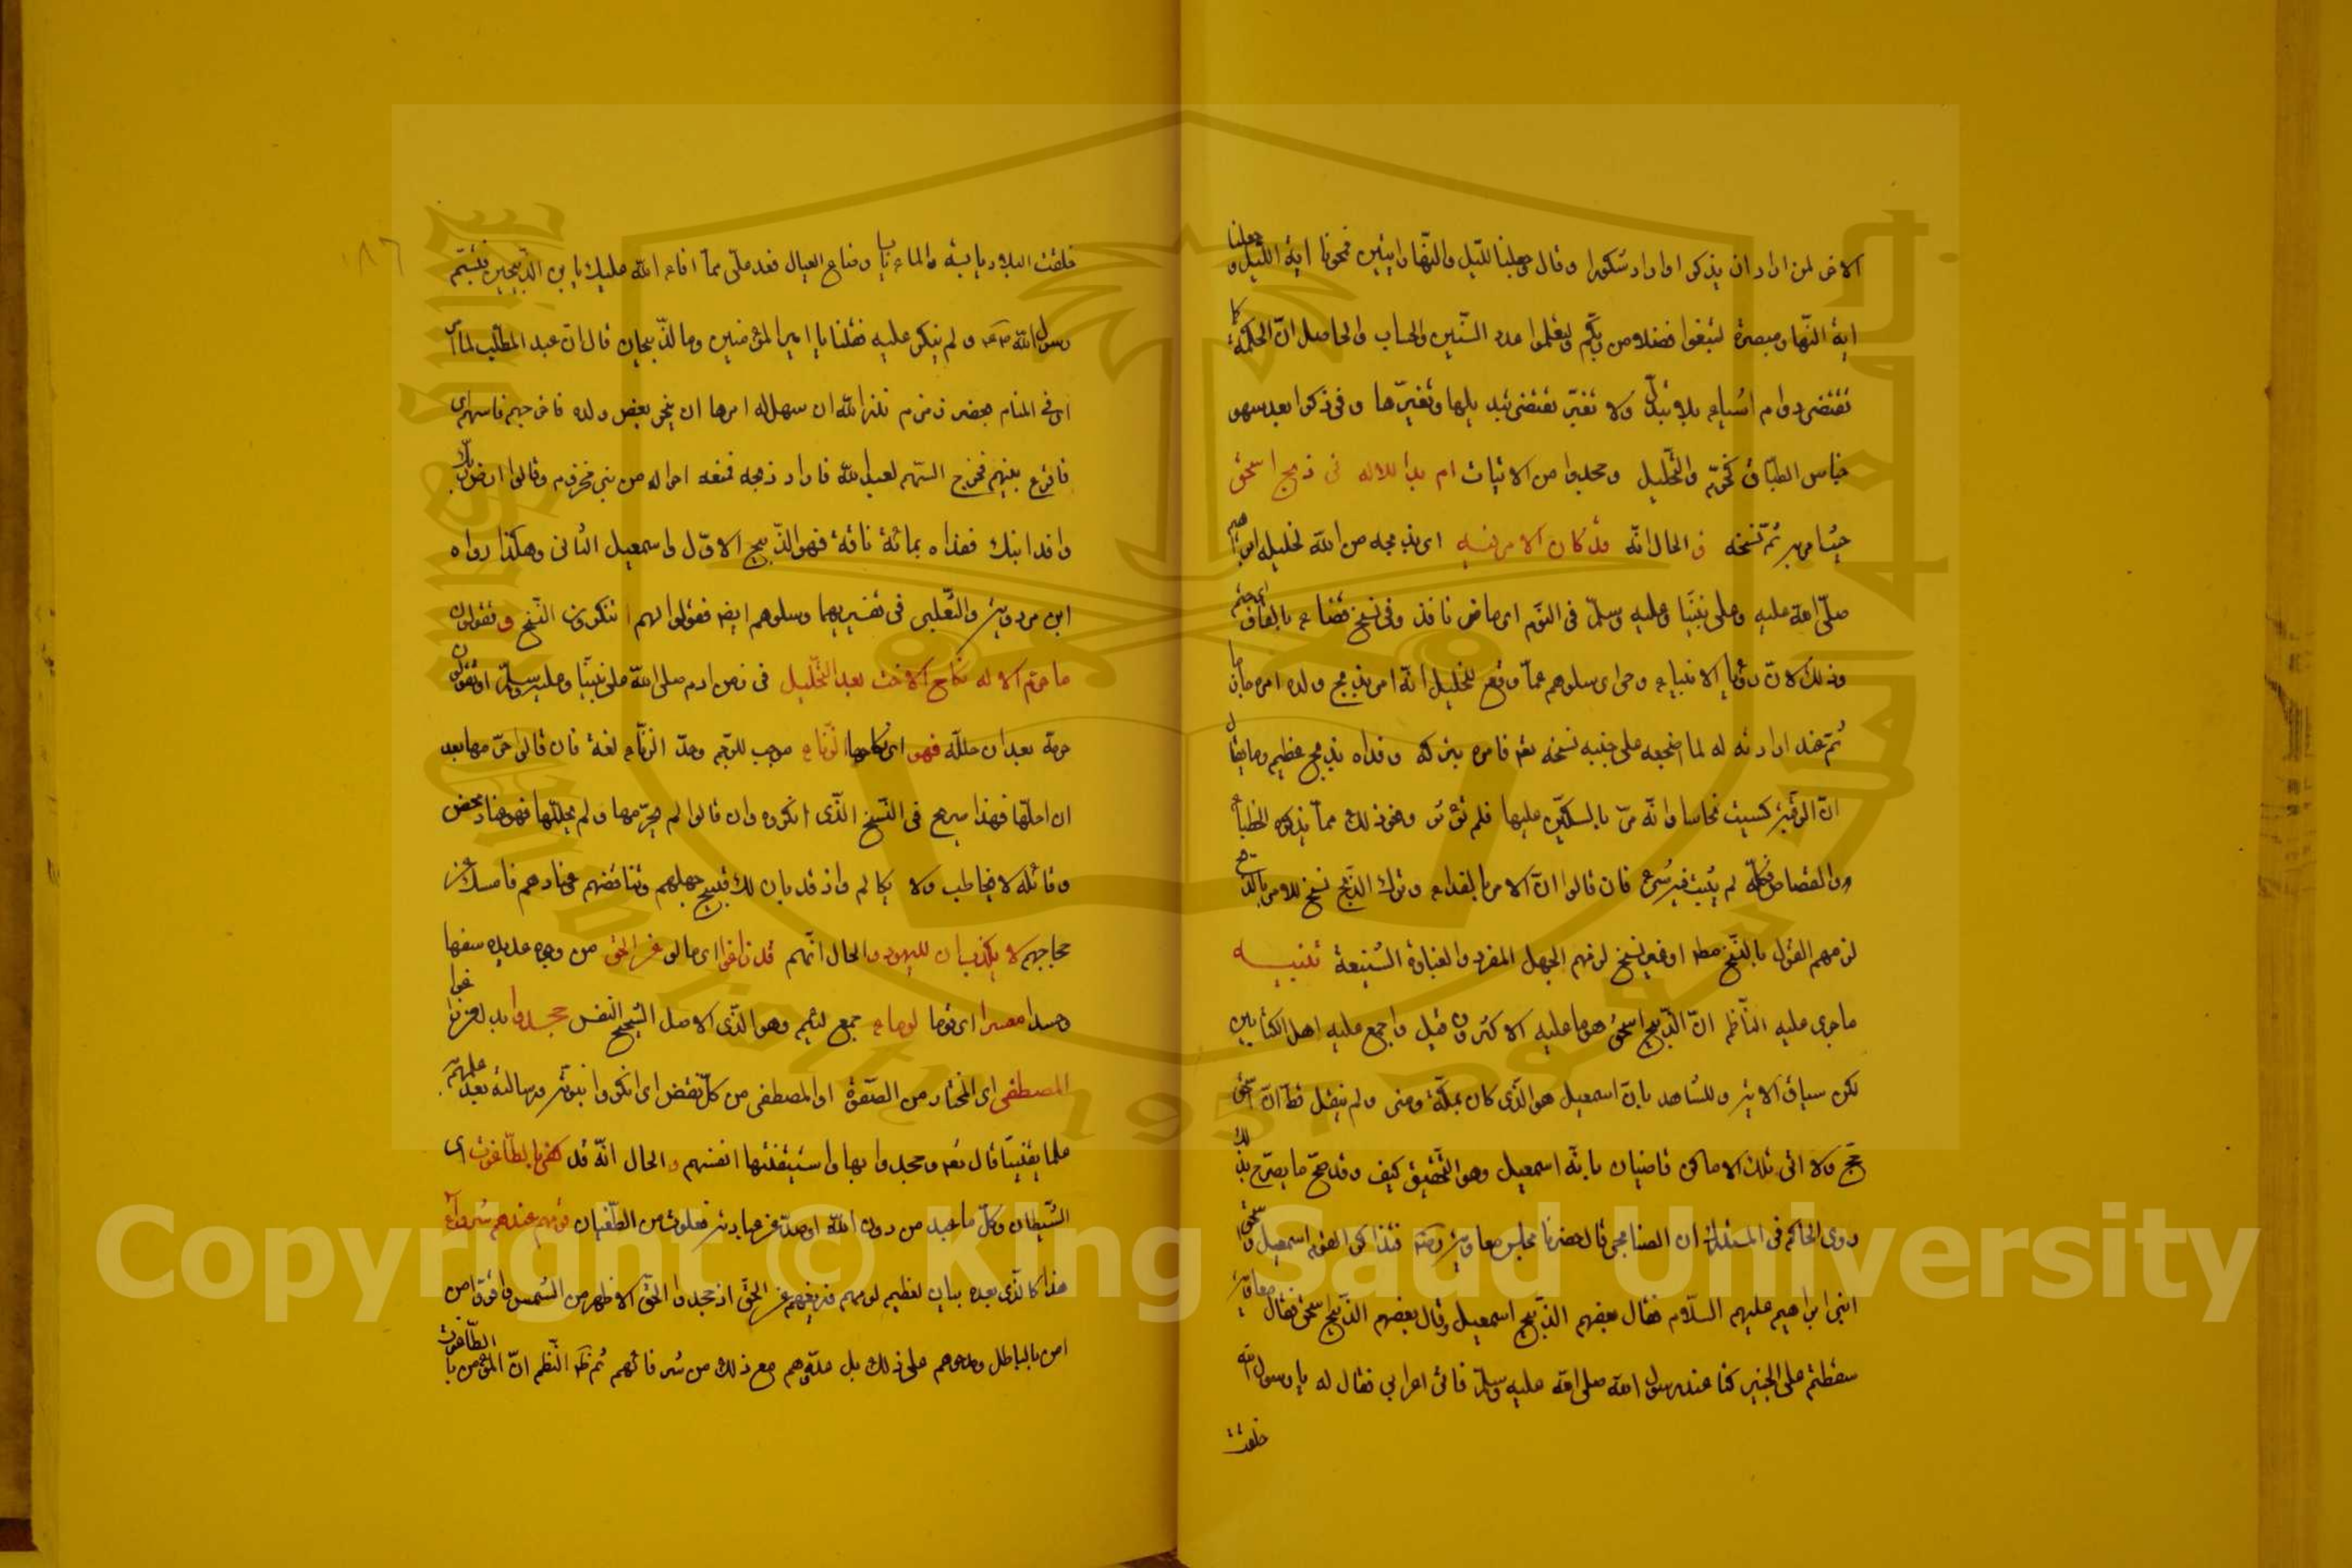 الارض لمن اراد ان يذكر او اراد شكورا وقال وجعلنا الليل والنهار ايتين فمحونا اية الليل وجعلنا
اية النهار مبصرة لتبتغوا فضلا من ربكم ولتعلموا عدد السنين والحساب والحاصل ان الحكمة كما
تقتضى دوام اشياء بلا تبدل ولا تغير تقتضى تبديلها وتغيرها وفى ذكر ابعد سهو
جناس الطباق كتحريم والتحليل ومحدوا من الاثبات ام بدا للاله فى ذبح اسحق
حيث امر به ثم نسخه فى الحال انه وقد كان الامر فيه اى بذبحه من الله لخليله ابراهيم
صلى الله عليه وعلى نبينا وعليه وسلم فى النوم اى ماض نافذ وفى نسخ قضاء بالقاف اى حتم
وذلك لان رؤيا الانبياء وحى اى سلوهم عما وقع للخليل انه امر بذبح ولده امرا جازما
ثم عند ارادته له لما اضجعه على جنبه نسخه تعالى فامره بتركه وفداه بذبح عظيم وما يقال
ان الرقبة كسيت نحاسا وانه مر بالسكين عليها فلم تؤثر ونحو ذلك مما يذكره الخطباء
والقصاص فكله لم يثبت فيه شىء فان قالوا ان الامر بالفداء وترك الذبح نسخ للامر بالذبح
لزمهم القول بالنسخ مطلقا او غير نسخ لزمهم الجهل المفرد والغباوة الشنيعة تنبيه
ما جرى عليه الناظم ان الذبيح اسحق هو ما عليه الاكثرون قيل واجمع عليه اهل الكتابين
لكن سياق الاية والشاهد بان اسمعيل هو الذى كان بمكة ومنى ولم ينقل قط ان اسحق
حج ولا اتى تلك الاماكن قاضيان بانه اسمعيل وهو التحقيق كيف وقد صح ما يصرح بذلك
روى الحاكم فى المستدرك ان الصنابحى قال حضرنا مجلس معاوية فتذاكر القوم اسمعيل واسحق
ابنى ابراهيم عليهم السلام فقال بعضهم الذبيح اسمعيل وقال بعضهم الذبيح اسحق فقال معاوية
سقطتم على الخبير كنا عند رسول الله صلى الله عليه وسلم فاتى اعرابى فقال له يا رسول الله
خلفت
خلفت البلاد يابسة والماء يابسا وضاع العيال فعد على مما افاء الله عليك يا ابن الذبيحين فتبسم
رسول الله صلعم ولم ينكر عليه فقلنا يا امير المؤمنين وما الذبيحان قال ان عبد المطلب لما امر
اى فى المنام بحفر زمزم نذر لله ان سهل له امرها ان ينحر بعض ولده فاخرجهم فاسهم اى
فاقرع بينهم فخرج السهم لعبد الله فاراد ذبحه فمنعه اخواله من بنى مخزوم وقالوا ارض ربك
وافد ابنك ففداه بمائة ناقة فهو الذبيح الاول واسمعيل الثانى وهكذا رواه
ابن مردويه والثعلبى فى تفسيريهما وسلوهم ايضا فقولوا لهم اتنكرون النسخ وتقولون
ما حرم الاله نكاح الاخت بعد التحليل فى زمن ادم صلى الله على نبينا وعليه وسلم او تقولون
حرمه بعد ان حلله فهو اى نكاحها الزناء موجب للرجم ومد الزناء لغة فان قالوا حرمها بعد
ان احلها فهذا صريح فى النسخ الذى انكروه وان قالوا لم يحرمها ولم يحللها فهو عناد محض
وقائله لا يخاطب ولا يكالم واذ قد بان لك قبيح جهلهم وتناقضهم وعنادهم فامسك عن
حجاجهم لا تكذب ان لليهود والحال انهم قد زاغوا اى مالوا عن الحق من وجوه عديدة سفها
وحسدا معشرا اى قوما لوماء جمع لئيم وهو الذى الاصل الشحيح النفس جحدوا
المصطفى اى المختار من الصفوة او المصطفى من كل نقص اى انكروا نبوته ورسالته بعد علمهم
علما يقينيا قال تعالى وجحدوا بها واستيقنتها انفسهم والحال انه قد كفر بالطاغوت اى
الشيطان وكل ما عبد من دون الله او صد عن عبادته فعلوت من الطغيان قوم هم عندهم شرفاء
هذا كالذى بعده بيان لعظيم لومهم فزيغهم عن الحق اذ جحدوا الحق الاظهر من الشمس وافرق من
امن بالباطل ومدحوهم على ذلك بل عدوهم مع ذلك من شرفائهم ثم نظر النظم ان المؤمن بالطاغوت
Copyright © King Saud University
King Saud University
جامعة الملك سعود
1957
١٨٦